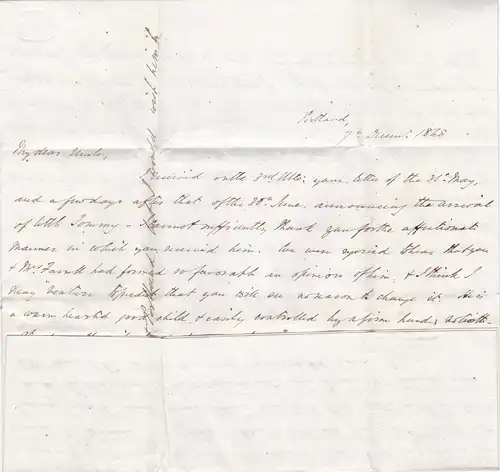 Portland,
7th Decemr. 1848
My dear Uncle,
I received on the 3rd Ulto: your letter of the 31st May,
and a few days after that of the 30th June, announcing the arrival
of little Tommy - I cannot sufficiently thank you for the affectionate
manner in which you received him. We were rejoiced to hear that you
& Mrs had formed so favorable an opinion of him, & I think I
may venture to predict that you will see no reason to change it. He is
a warm hearted good child & easily controlled by a firm hand;
would wish him to